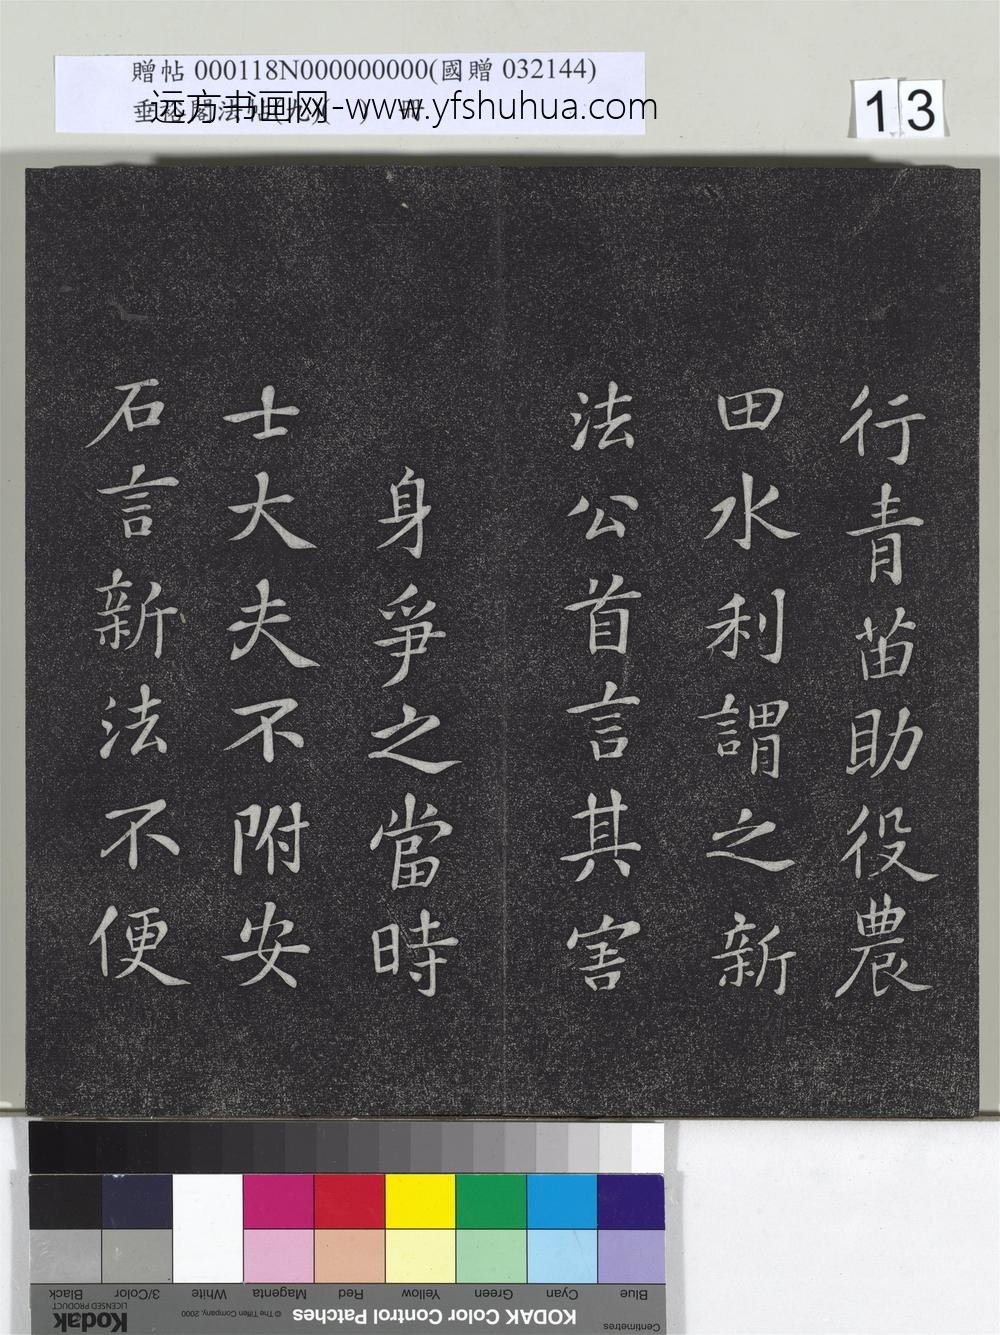 贈帖 000118N000000000(國贈 032144)
远方书画网-www.yfshuhua.com
13
行青苗助役農
田水利謂之新
法公首言其害
身爭之當時
士大夫不附安
石言新法不便
Black
3/Color
White
Magenta
Red
Yellow
Green
Cyan
Blue
Kodak
LICENSED PRODUCT
© The Tiffen Company, 2000
KODAK Color Control Patches
Centimetres